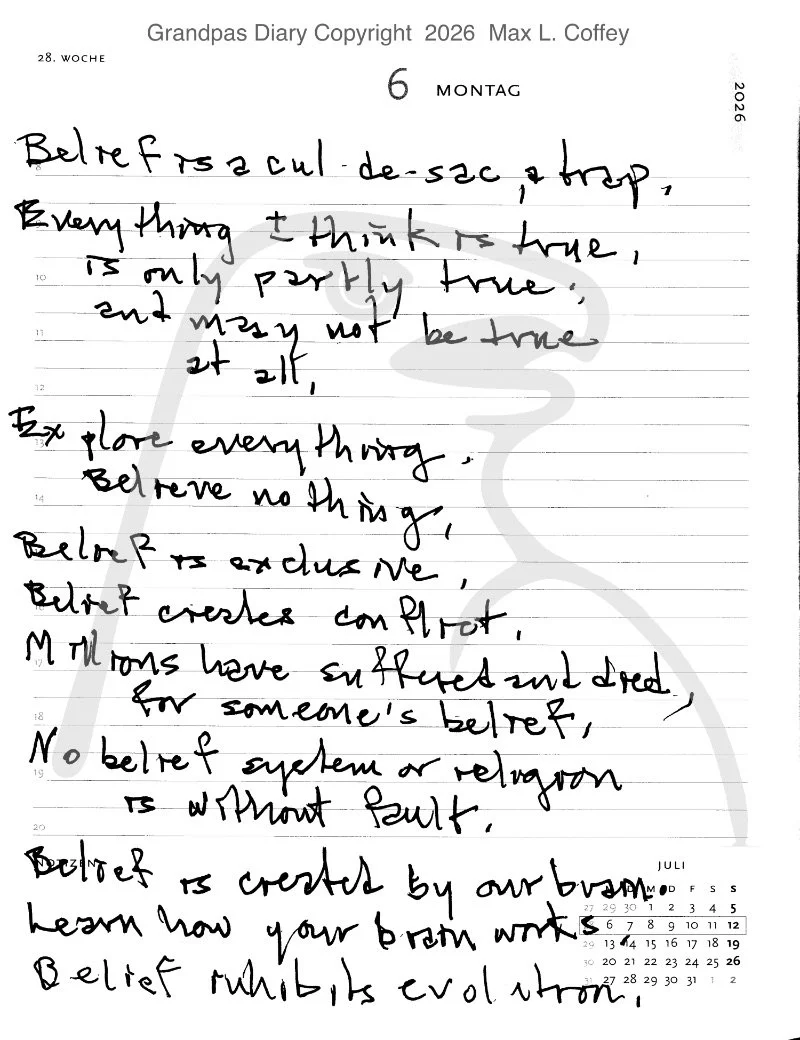 Grandpas Diary Copyright 2026 Max L. Coffey
28. WOCHE
6 MONTAG
2026
Belief is a cul-de-sac, a trap.
Everything I think is true,
is only partly true,
and may not be true
at all.
Explore everything.
Believe nothing.
Belief is exclusive.
Belief creates conflict.
Millions have suffered and died,
for someone's belief.
No belief system or religion
is without fault.
Belief is created by our brain.
Learn how your brain works
Belief inhibits evolution.
10
11
12
13
14
17
18
19
20
NOTIZEN
JULI
M D F S S
27 29 30 1 2 3 4 5
6 7 8 9 10 11 12
29 13 14 15 16 17 18 19
30 20 21 22 23 24 25 26
31 27 28 29 30 31 1 2